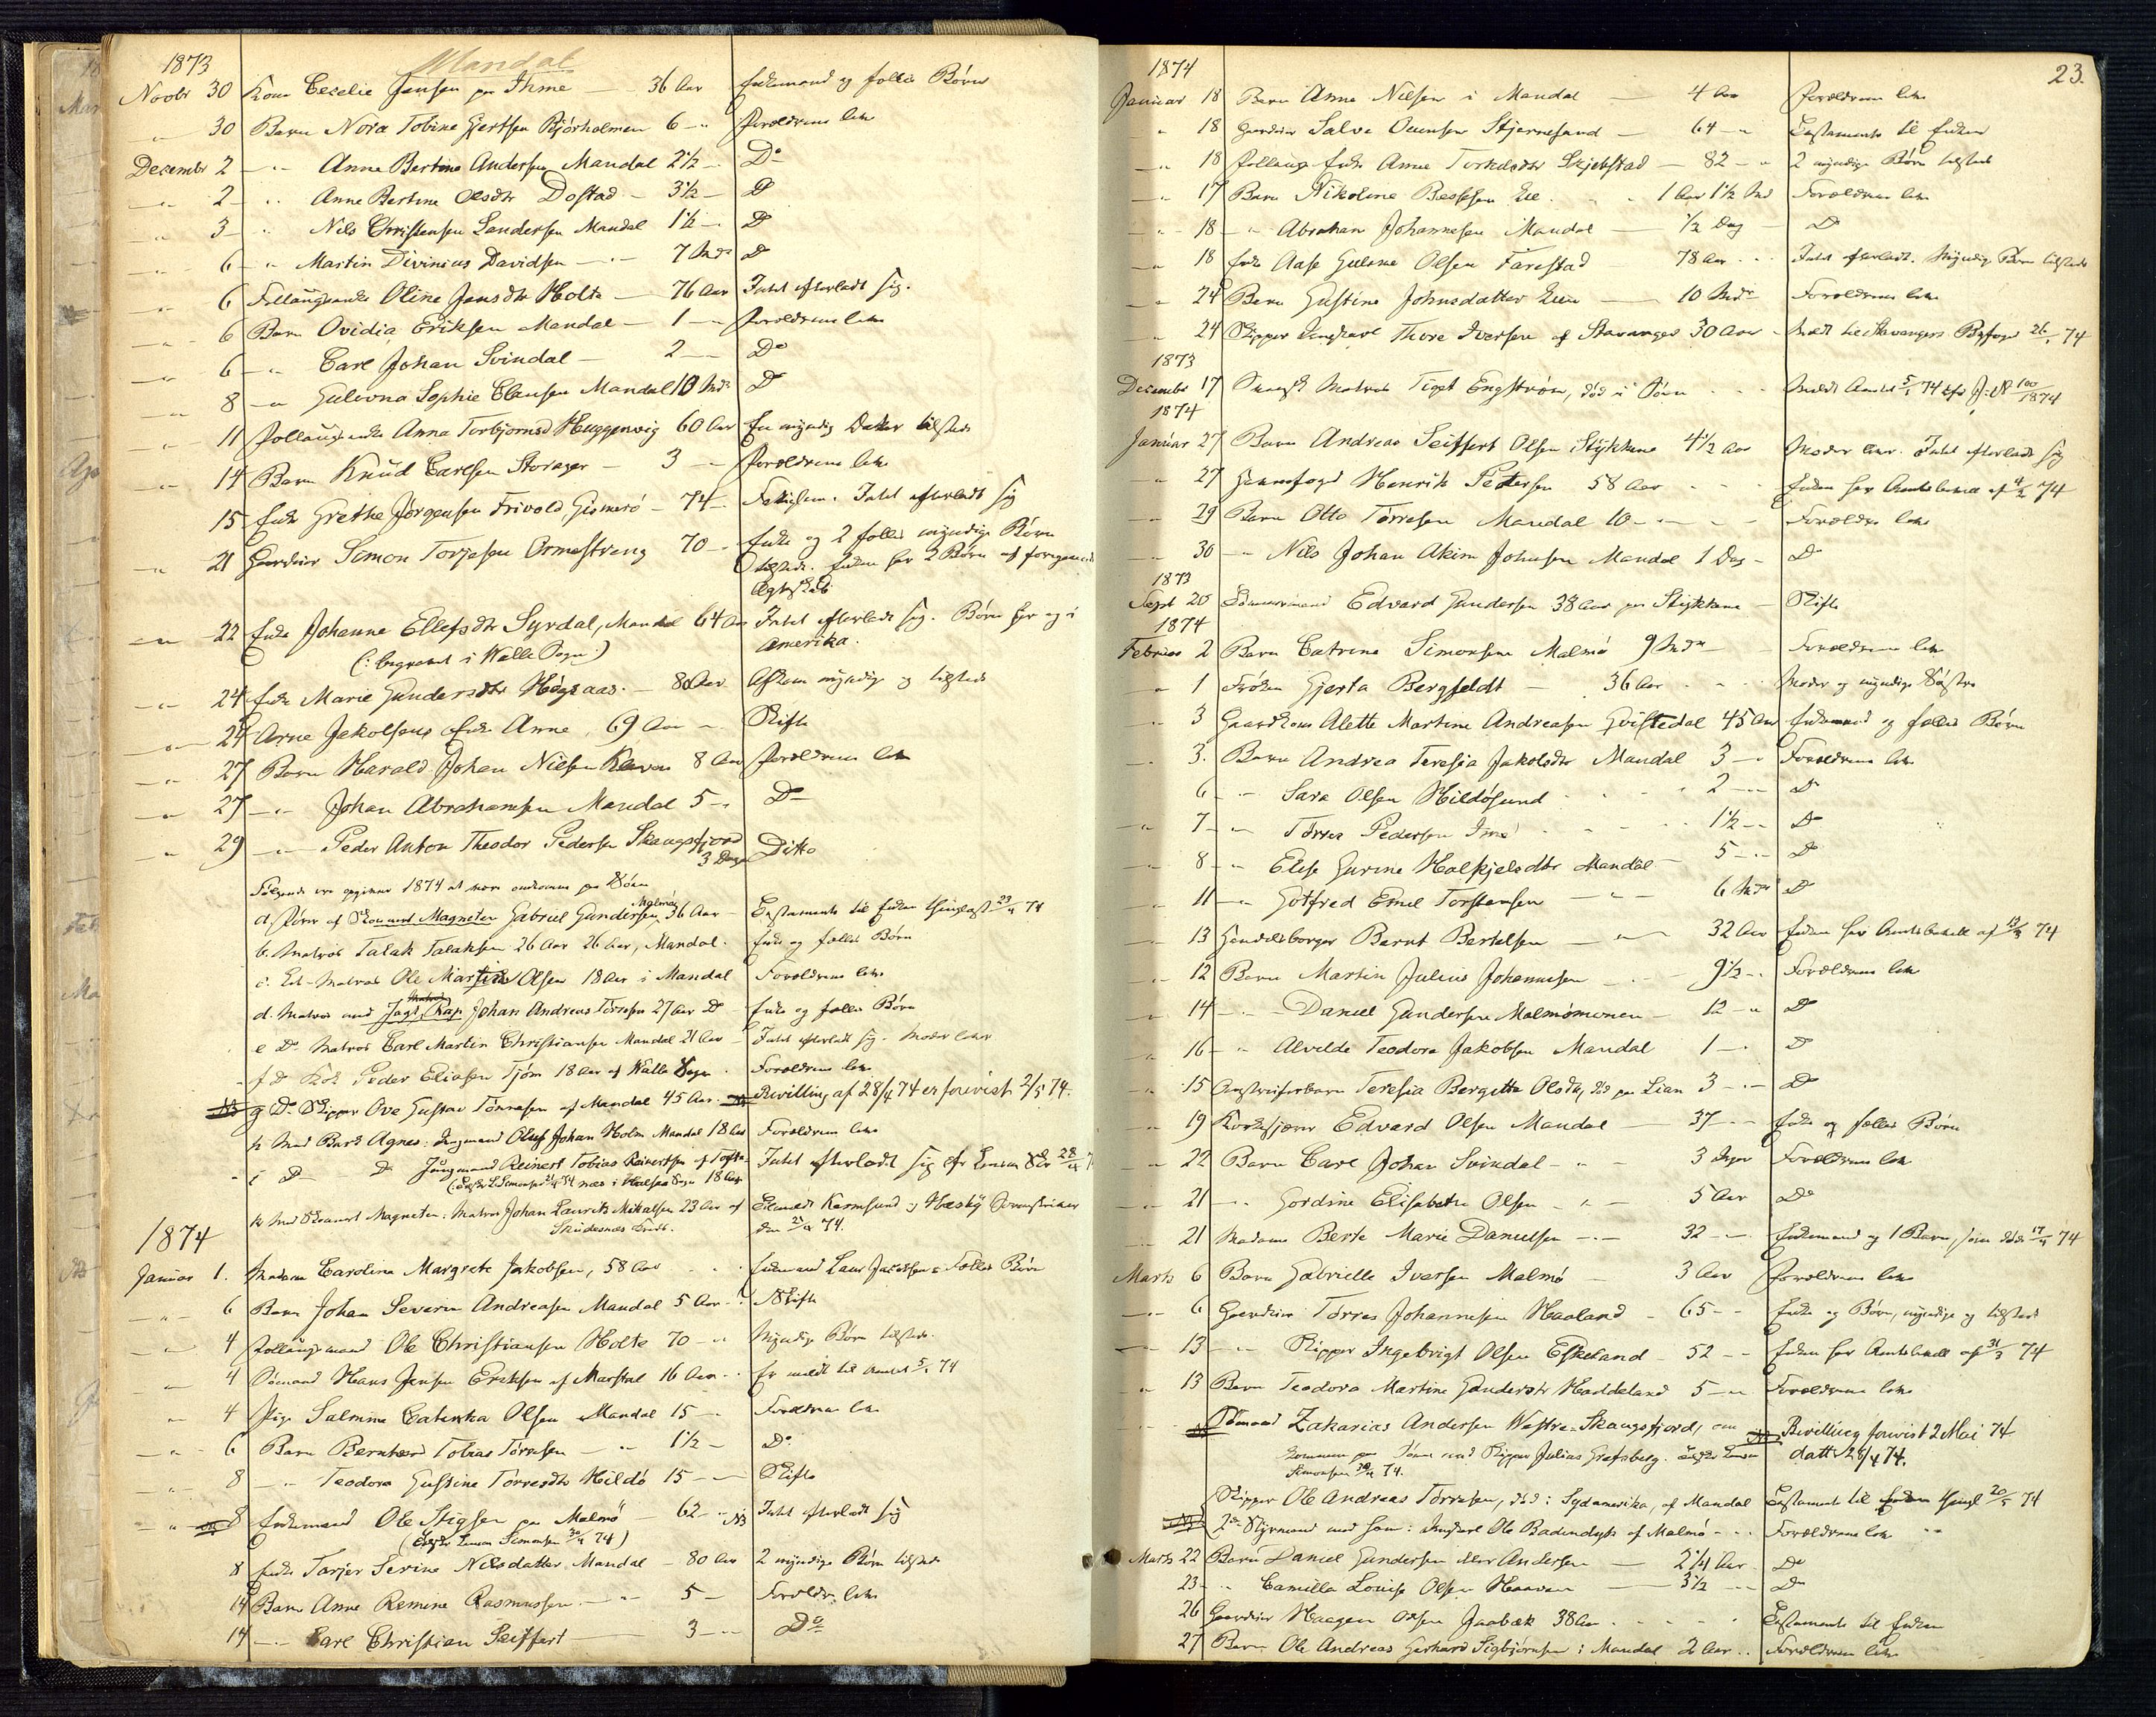 Mandal
1873
Novbr 30 Kone Cecelie Jensen paa Ihme — 36 Aar Enkemand og fælles Børn
" 30 Barn Nora Tobine Gjertsen Bjørholmen 6 — " Forældrene leve
Decembr 2 — " — Anne Bertine Andersen Mandal 2½ — Do
" 2 — " Anne Bertine Olsdtr Dostad — 3½ — Do
" 3 — " Nils Christensen Sandersen Mandal 1½ — " Do
" 6 — " Martin Divinius Davidsen — " — 7 Mdr Do
" 6 Fattigenke Oline Jensdtr Holte — 76 Aar Intet efterladt sig.
" 6 Barn Ovidia Eriksen Mandal — 1 — " Forældrene leve
" 6 — " Carl Johan Svindal — 2 — Do
" 8 — " Gulovna Sophie Clausen Mandal 10 Mdr Do
" 11 Follaugsenke Anna Torbjørnsd Huggenvig 60 Aar En myndig Datter tilstede
" 14 Barn Knud Carlsen Storager — 3 — Forældrene leve
15 Enke Grethe Jørgensen Frivold Gismerø — 74 — Fattiglem. Intet efterladt sig
" 21 Gaardmr Simon Torjesen Ormestreng 70 — Enke og 2 fælles myndige Børn
tilstede. Enken har 2 Børn af foregaaende
Ægteskab
" 22 Enke Johanne Ellefsdtr Syrdal, Mandal 64 Aar Intet efterladt sig. Børn her og i
(: begravet i Halle Sogn :) Amerika.
" 24 Enke Marie Gundersdtr Høgsaas — 80 Aar Afkom myndig og tilstede
" 24 Arne Jakobsens Enke Anne, 69 Aar — Skifte
" 27 Barn Harald Johan Nilsen Kleven 8 Aar Forældrene leve
" 27 — " Johan Abrahamsen Mandal 5 — " Do
" 29 — " Peder Anton Theodor Pedersen Skaugsfjord
3 Dage Ditto
Følgende ere opgivne 1874 at være omkomne paa Søen
Malmø
a, Fører af Skonnert Magneten Gabriel Gundersen, 36 Aar — Testamente til Enken thinglæst 23/4 74
b. Matros Talak Talaksen 26 Aar 26 Aar, Mandal. Enke og fælles Børn
c. Let-Matros Ole Martin Olsen 18 Aar i Mandal Forældrene leve
d. Matros med Jagt Rap Johan Andreas Tørresen 27 Aar Do Enke og fælles Børn
e Do Matros Carl Martin Christiansen Mandal 21 Aar — Intet efterladt sig. Moder lever
f Do Kok Peder Eliasen Tjøm 18 Aar af Halle Sogn. Forældrene leve
NB g Do Skipper Ove Gustav Tønnesen af Mandal 45 Aar. NB Bevilling af 28/4 74 er forevist 2/5 74.
h Med Bark Agnes: Jungmand Oluf Johan Holm Mandal 18 Aar Forældrene leve
i Do — Do Jungmand Reinert Tobias Reinertsen af Tofte Intet efterladt sig
18 Aar
k Med Skonnert Magneten: Matros Johan Laurits Mikalsen 23 Aar af
Skudesnæs
1874
Januar 1. Madam Carolina Margrete Jakobsen, 58 Aar Enkemand Laur Jacobsen & Fælles Børn
" 6 Barn Johan Severin Andreasen Mandal 5 Aar Skifte
4 Follaugsmand Ole Christiansen Holte 70 — " Myndige Børn tilstede.
" 4 Sømand Hans Jensen Eriksen af Marstal 16 Aar Er meldt til Amtet 5/1 74
" 4 Pige Salmine Catinka Olsen Mandal 15 — Forældrene leve
" 6 Barn Bernhard Tobias Tørresen — " — 1½ — Do
8 — " Teodora Gustine Tørresdtr Hildø 15 — Skifte
" NB 8 Enkemand Ole Stigsen paa Malmø — 62 — " NB Intet efterladt sig
(efter Lensm Simonsen 30/4 74)
8 Enke Tarjer Serine Nilsdatter Mandal — 80 Aar 2 myndige Børn tilstede
14 Barn Anne Remine Rasmussen — " — 5 — Forældre leve
14 — " Carl Christian Seiffert — 3 — " Do
23.
1874
Januar 18 Barn Anne Nilsen i Mandal — 4 Aar Forældrene leve
" 18 Gaardmr Salve Ouensen Stjernesund — 64 — " Testamente til Enken
" 18 Follaugs-Enke Anne Torkelsdtr Skjebstad — 82 — " 2 myndige Børn tilstede
" 17 Barn Nikoline Bessesen Lie 1 Aar 1½ Md Forældrene leve
" 18 — " Abraham Johannesen Mandal — ½ Dag — Do
" 18 Enke Aase Gulene Olsen Farestad 78 Aar Intet efterladt. Myndige Børn tilstede
" 24 Barn Gustine Johnsdatter Lien — 10 Mdr Forældrene leve
" 24 Skipper Ungkarl Thore Iversen af Stavanger 30 Aar — Meldt til Stavangers Byfoged 26/1 74
1873
Decembr 17 Svensk Matros Engstrøm, død i Søen Meldt Amtet 5/1 74 J. No 100/1874
1874
Januar 27 Barn Andreas Seiffert Olsen Stykkene 4½ Aar Moder lever. Intet efterladt sig
" 27 Havnefoged Henrik Pedersen 58 Aar Enken har Amtsbevill af 4/2 74
" 29 Barn Otto Tørresen Mandal 10 — " Forældre leve
" 30 — " Nils Johan Akim Johnsen Mandal 1 Dag — Do
1873
Sept 20 Tømmermand Edvard Gundersen 38 Aar paa Stykkene — Skifte
1874
Februar 2 Barn Catrine Simonsen Malmø 9 Mdr — Forældrene leve
" 1 Frøken Gjerta Bergfeldt — 36 Aar Moder og myndige Søstre
" 3 Gaardkone Alette Martine Andreasen Qvistedal 45 Aar Enkemand og fælles Børn
3. Barn Andrea Teresia Jakobsdtr Mandal 3 — " Forældrene leve
6 — " Sara Olsen Hildøsund 2 — " Do
" 7 — " Tørres Pedersen Ime 1½ — " Do
" 8 — " Elise Gurine Halkjelsdtr Mandal — 5 — " Do
" 11 — " Gotfred Emil Torstensen — " — 6 Mdr Do
" 13 Handelsborger Bernt Bertelsen — " — 32 Aar Enken har Amtsbevill af 13/3 74
" 12 Barn Martin Julius Johannesen — 9½ — " Forældrene leve
" 14 — " Daniel Gundersen Malmømonen — 12 — " Do
" 16 — " Alvilde Teodora Jakobsen Mandal 1 — " Do
" 15 Teresia Bergitte Olsdtr, død paa Lian 3 — " — Do
" 19 Edvard Olsen Mandal — 37 — " Enke og fælles Børn
" 22 Barn Carl Johan Svindal — " — 3 Dage Forældrene leve
" 21 — " Gordine Elisabeth Olsen — " — 5 Aar Do
" 21 Madame Berte Marie Danielsen — " — 32 — " Enkemand og 1 Barn, som døde 17/4 74
Marts 6 Barn Gabrielle Iversen Malmø — 3 Aar Forældrene leve
" 6 Gaardmr Tørres Johannesen Haaland — 65 — " Enke og Børn, myndige og tilstede
" 13 — " Skipper Ingebrigt Olsen Eskeland — 52 — " Enken har Amtsbevill af 31/3 74
" 13 Barn Teodora Martine Gundersdtr Haddeland 5 — " Forældrene leve
NB Sømand Zakarias Andersen Westre-Skaugsfjord, om NB Bevilling forevist 2 Mai 74
kommen paa Søen med Skipper Julius Grefsberg. efter Lensm datt. 28/4 74.
Simonsen 30/4 74.
Skipper Ole Andreas Tørresen, død i Sydamerika, af Mandal Testament til Enken thingl 20/5 74
NB 2de Styrmand med ham: Ungkarl Ole Badendyk af Malmø Forældrene leve
Marts 22 Barn Daniel Gundersen eller Andersen — 2¼ Aar Do
23 — " Camilla Louise Olsen Haaven — 3½ — Do
26 Gaardmr Haagen Olsen Jaabæk 38 Aar Testamente til Enken
27 Barn Ole Andreas Gerhard Sigbjørnsen i Mandal 2 Aar Forældrene leve